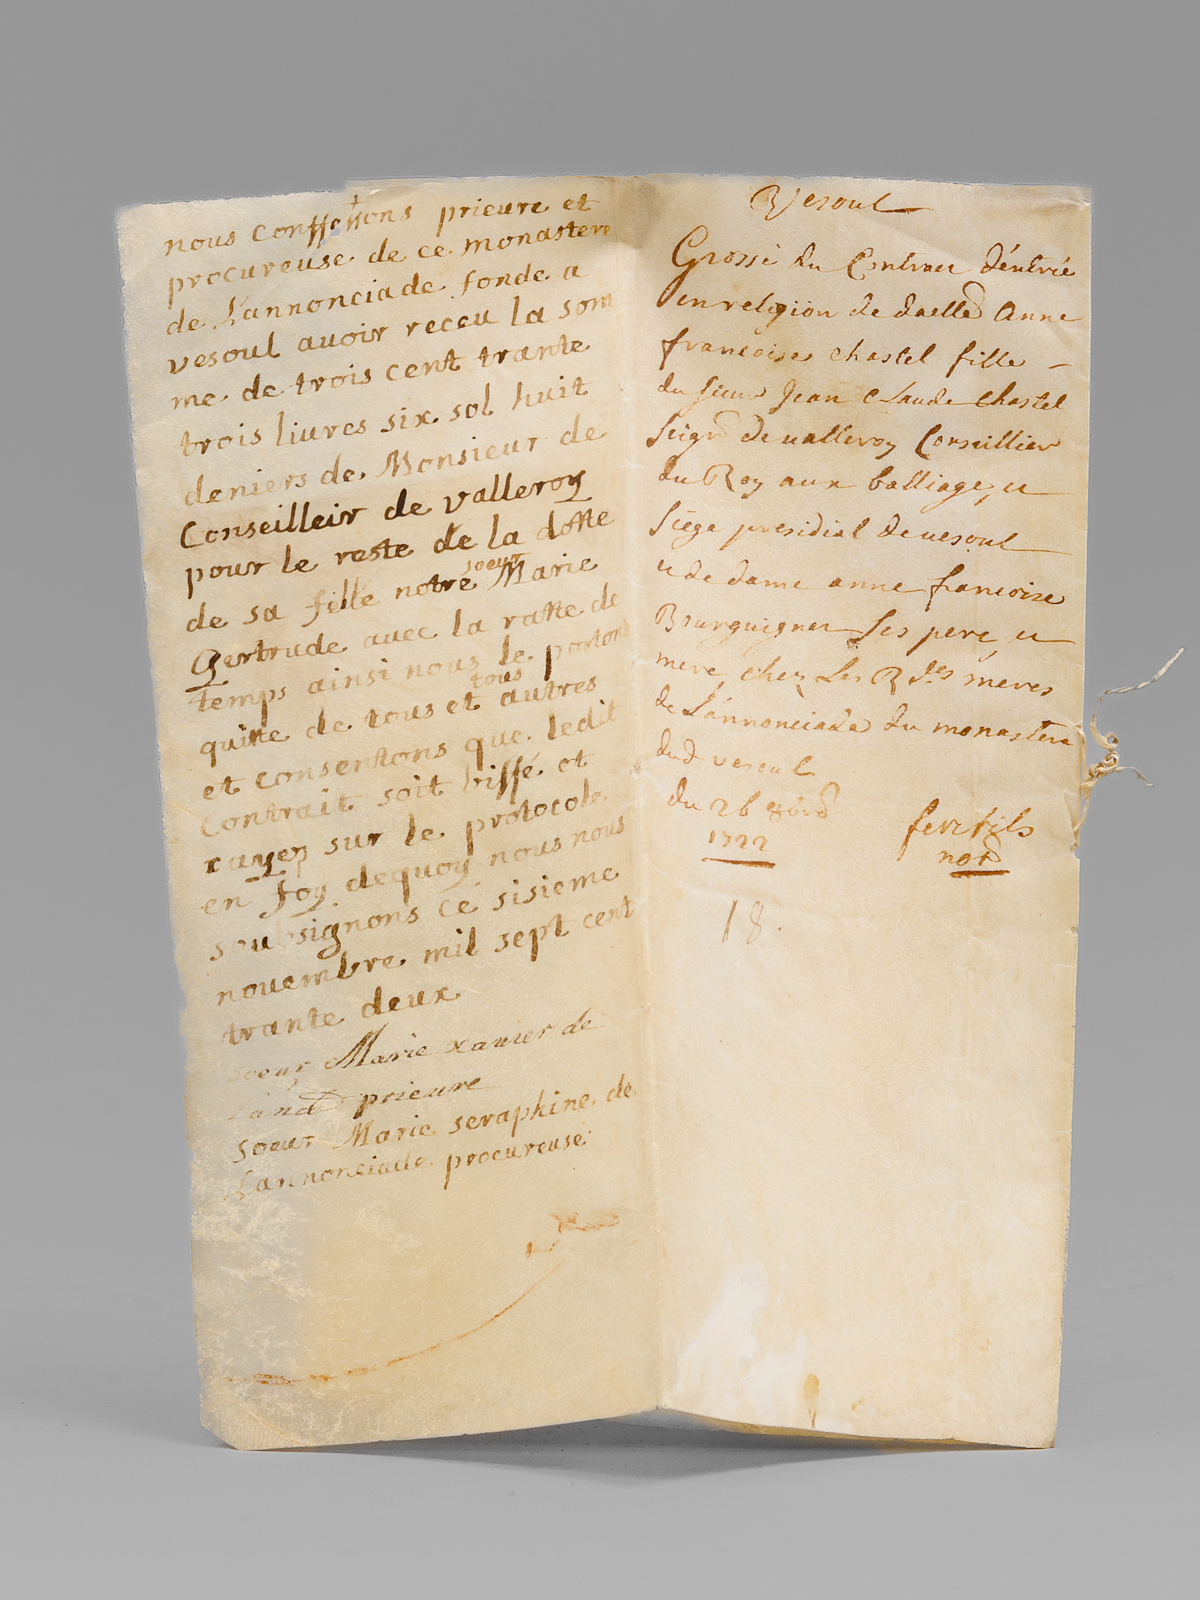 nous confessons prieure et
procureuse de ce monastere
de Lannonciade fonde a
vesoul auoir receu la som
me de trois cent trante
trois liures six sol huit
deniers de Monsieur de
Conseilleir de valleroy
pour le reste de la dotte
de sa fille notre soeur Marie
Gertrude auec la ratte de
temps ainsi nous le portons
quitte de tous et tous autres
et consentons que ledit
contrait soit biffé et
rayez sur le protocole
en foy dequoy nous nous
sousignons ce sisieme
nouembre mil sept cent
trante deux
soeur Marie xauier de
Land prieure
soeur Marie seraphine de
Lannonciade procureuse
Vesoul
Grosse du Contract déntrée
en religion de daelle Anne
francoise chastel fille
du sieur Jean Claude Chastel
seigr de ualleroy Conseillier
du Roy aux balliage et
siege presidial de uesoul
et de dame anne francoise
Bourguignet ses pere et
mere chez Les R des meres
de Lánnonciade du monastere
dud vesoul
du 26
1722
ferrfils
not
18.